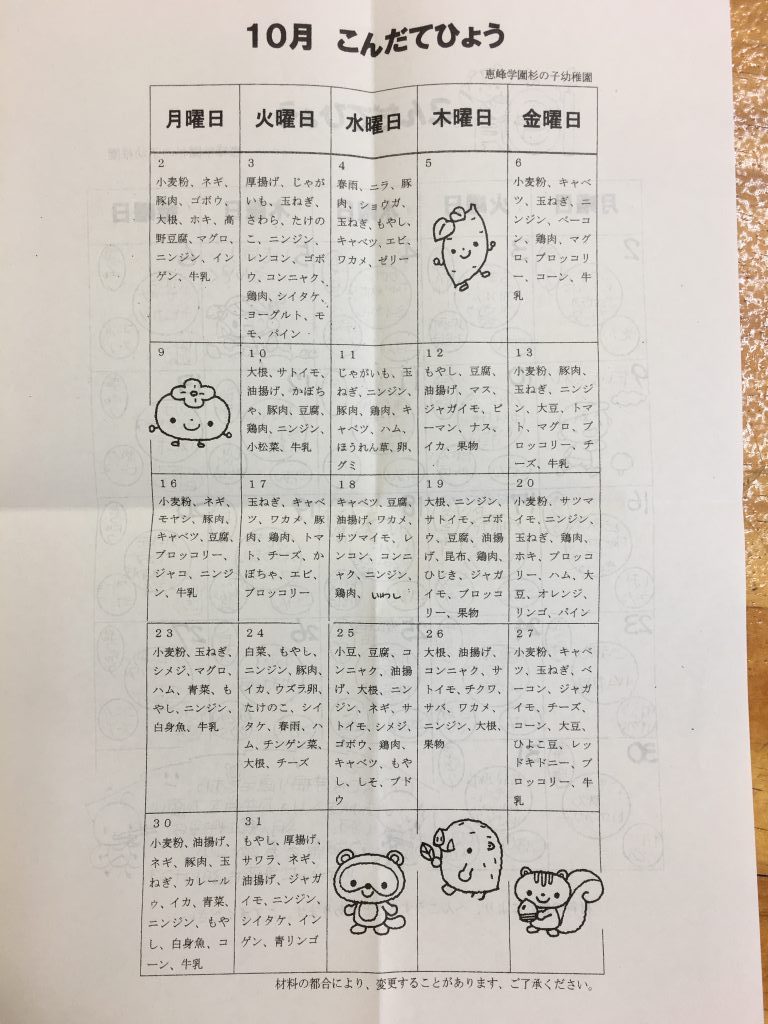 10月 こんだてひょう
恵峰学園杉の子幼稚園
月曜日 火曜日 水曜日 木曜日 金曜日
2
小麦粉、ネギ、
豚肉、ゴボウ、
大根、ホキ、高
野豆腐、マグロ、
ニンジン、イン
ゲン、牛乳
3
厚揚げ、じゃが
いも、玉ねぎ、
さわら、たけの
こ、ニンジン、
レンコン、ゴボ
ウ、コンニャク、
鶏肉、シイタケ、
ヨーグルト、モ
モ、パイン
4
春雨、ニラ、豚
肉、ショウガ、
玉ねぎ、もやし、
キャベツ、エビ、
ワカメ、ゼリー
5
6
小麦粉、キャベ
ツ、玉ねぎ、ニ
ンジン、ベーコ
ン、鶏肉、マグ
ロ、ブロッコリ
ー、コーン、牛
乳
9
10
大根、サトイモ、
油揚げ、かぼち
ゃ、豚肉、豆腐、
鶏肉、ニンジン、
小松菜、牛乳
11
じゃがいも、玉
ねぎ、ニンジン、
豚肉、鶏肉、キ
ャベツ、ハム、
ほうれん草、卵、
グミ
12
もやし、豆腐、
油揚げ、マス、
ジャガイモ、ピ
ーマン、ナス、
イカ、果物
13
小麦粉、豚肉、
玉ねぎ、ニンジ
ン、大豆、トマ
ト、マグロ、ブ
ロッコリー、チ
ーズ、牛乳
16
小麦粉、ネギ、
モヤシ、豚肉、
キャベツ、豆腐、
ブロッコリー、
ジャコ、ニンジ
ン、牛乳
17
玉ねぎ、キャベ
ツ、ワカメ、豚
肉、鶏肉、トマ
ト、チーズ、か
ぼちゃ、エビ、
ブロッコリー
18
キャベツ、豆腐、
油揚げ、ワカメ、
サツマイモ、レ
ンコン、コンニ
ャク、ニンジン、
鶏肉、いわし
19
大根、ニンジン、
サトイモ、ゴボ
ウ、豆腐、油揚
げ、昆布、鶏肉、
ひじき、ジャガ
イモ、ブロッコ
リー、果物
20
小麦粉、サツマ
イモ、ニンジン、
玉ねぎ、鶏肉、
ホキ、ブロッコ
リー、ハム、大
豆、オレンジ、
リンゴ、パイン
23
小麦粉、玉ねぎ、
シメジ、マグロ、
ハム、青菜、も
やし、ニンジン、
白身魚、牛乳
24
白菜、もやし、
ニンジン、豚肉、
イカ、ウズラ卵、
たけのこ、シイ
タケ、春雨、ハ
ム、チンゲン菜、
大根、チーズ
25
小豆、豆腐、コ
ンニャク、油揚
げ、大根、ニン
ジン、ネギ、サ
トイモ、シメジ、
ゴボウ、鶏肉、
キャベツ、もや
し、しそ、ブド
ウ
26
大根、油揚げ、
コンニャク、サ
トイモ、チクワ、
サバ、ワカメ、
ニンジン、大根、
果物
27
小麦粉、キャベ
ツ、玉ねぎ、ベ
ーコン、ジャガ
イモ、チーズ、
コーン、大豆、
ひよこ豆、レッ
ドキドニー、ブ
ロッコリー、牛
乳
30
小麦粉、油揚げ、
ネギ、豚肉、玉
ねぎ、カレール
ゥ、イカ、青菜、
ニンジン、もや
し、白身魚、コ
ーン、牛乳
31
もやし、厚揚げ、
サワラ、ネギ、
油揚げ、ジャガ
イモ、ニンジン、
シイタケ、イン
ゲン、青リンゴ
材料の都合により、変更することがあります、ご了承ください。